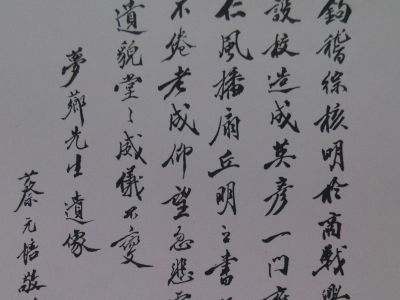 鈎稽综核明於商戰興
設校造成英彦一門
仁風播扇丘明之書
不倦老成仰望忽悲
遺貌堂〻威儀不變
夢薌先生遺像
蔡元培敬